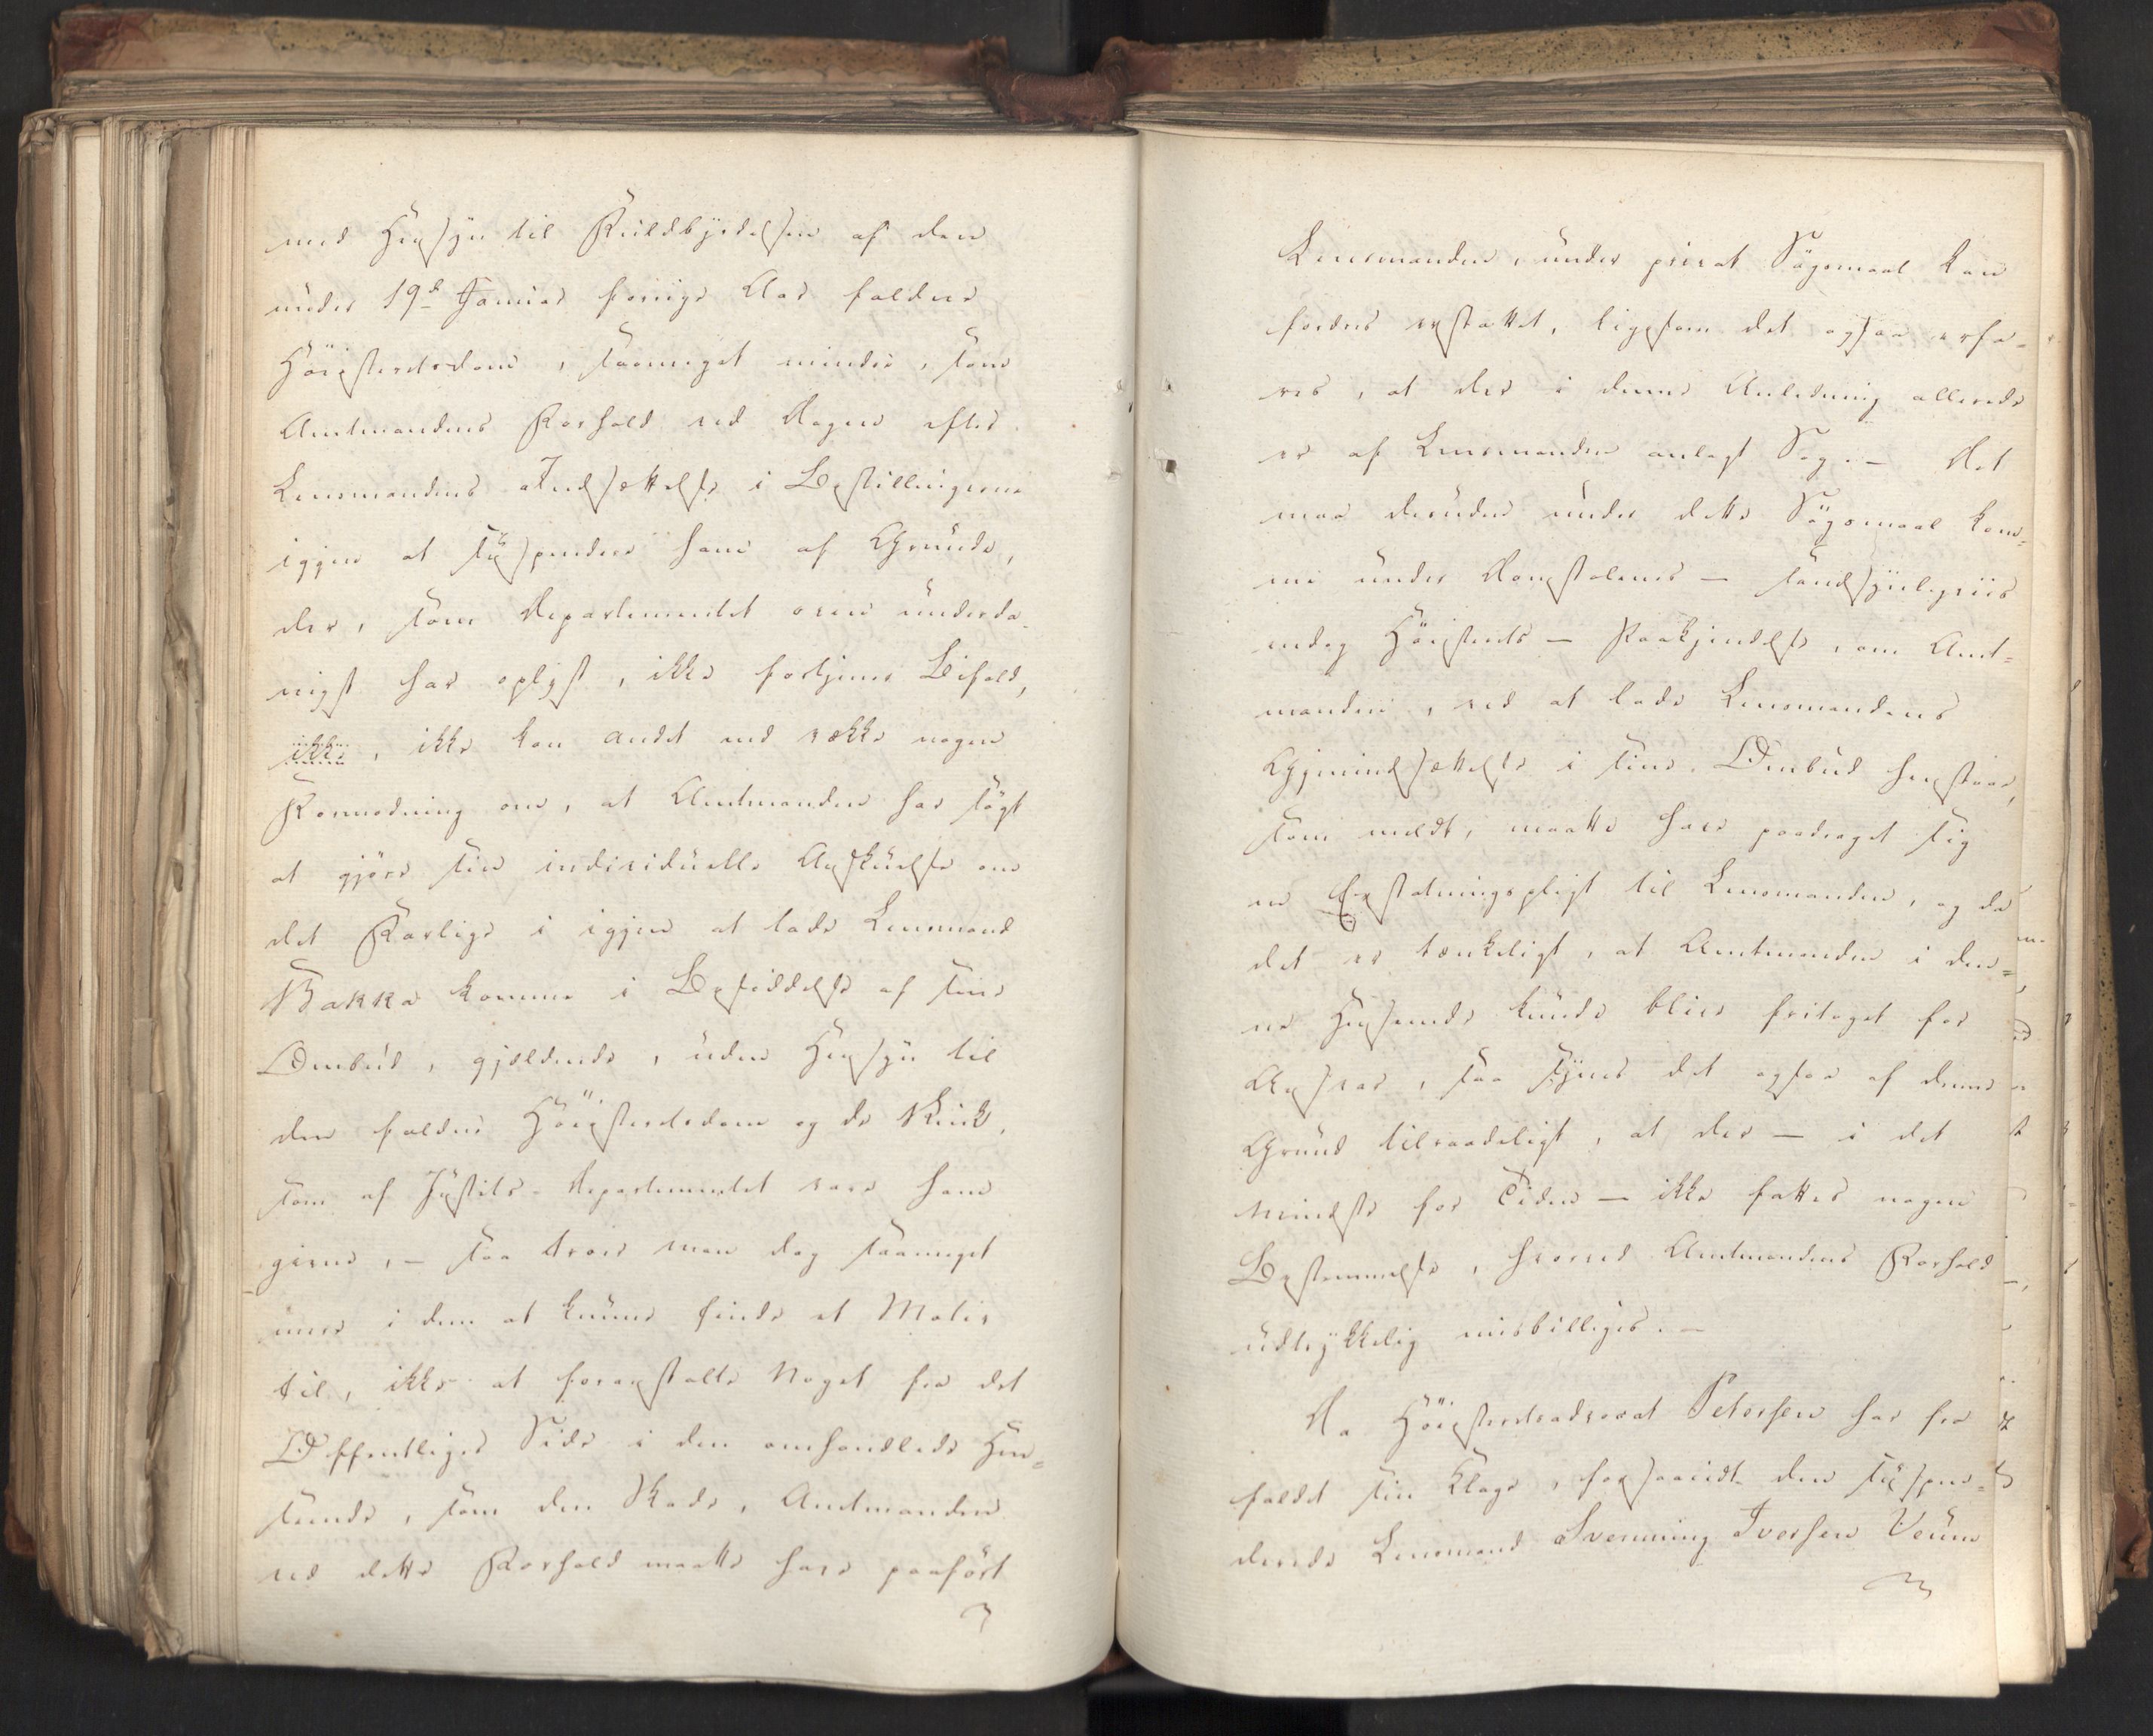 med Hensyn til Fuldbyrdelsen af den
under 19de Januar forrige Aar faldne
Höiesteretsdom, saameget mindre, som
Amtmandens Forhold ved Dagen efter
Lensmandens Indsættelse i Bestillingerne
igjen at suspendere ham af Grunde,
der, som Departementet oven underda-
nigst har oplyst, ikke fortjene Bifald,
ikke, ikke kan andet end vække nogen
Formodning om, at Amtmanden har sögt
at gjöre sin individuelle Anskuelse om
det Farlige i igjen at lade Lensmand
Bakka komme i Besiddelse af sine
Ombud, gjældende, uden Hensyn til
den faldne Höiesteretsdom og de Vink,
som af Justits-Departementet vare ham
givne, – saa troer man dog saameget
mere i dem at kunne finde et Motiv
til, ikke at foranstalte Noget fra det
Offentliges Side i den omhandlede Hen-
seende, som den Skade, Amtmanden
ved dette Forhold maatte have paafört
Lensmanden, under privat Sögsmaal kan
fordres erstattet, ligesom det ogsaa erfa-
res, at der i denne Anledning allerede
er af Lensmanden anlagt Sag. – Det
maa desuden under dette Sögsmaal kom-
me under Domstolenes – sandsynligviis
endog Höiesterets – Paakjendelse, om Amt-
manden, ved at lade Lensmandens
Gjenindsættelse i sine Ombud henstaae,
som meldt, maatte have paadraget sig
en Erstatningspligt til Lensmanden, og da
det er tænkeligt, at Amtmanden i den-
ne Henseende kunde blive fritaget for
Ansvar, saa synes det ogsaa af denne
Grund tilraadeligt, at der – i det
mindste for Tiden – ikke fattes nogen
Bestemmelse, hvorved Amtmandens Forhold
udtrykkelig misbilliges. –
Da Höiesteretsadvocat Petersen har fra
faldt sin Klage, forsaavidt den suspen-
derede Lensmand Svenning Iversen Veum